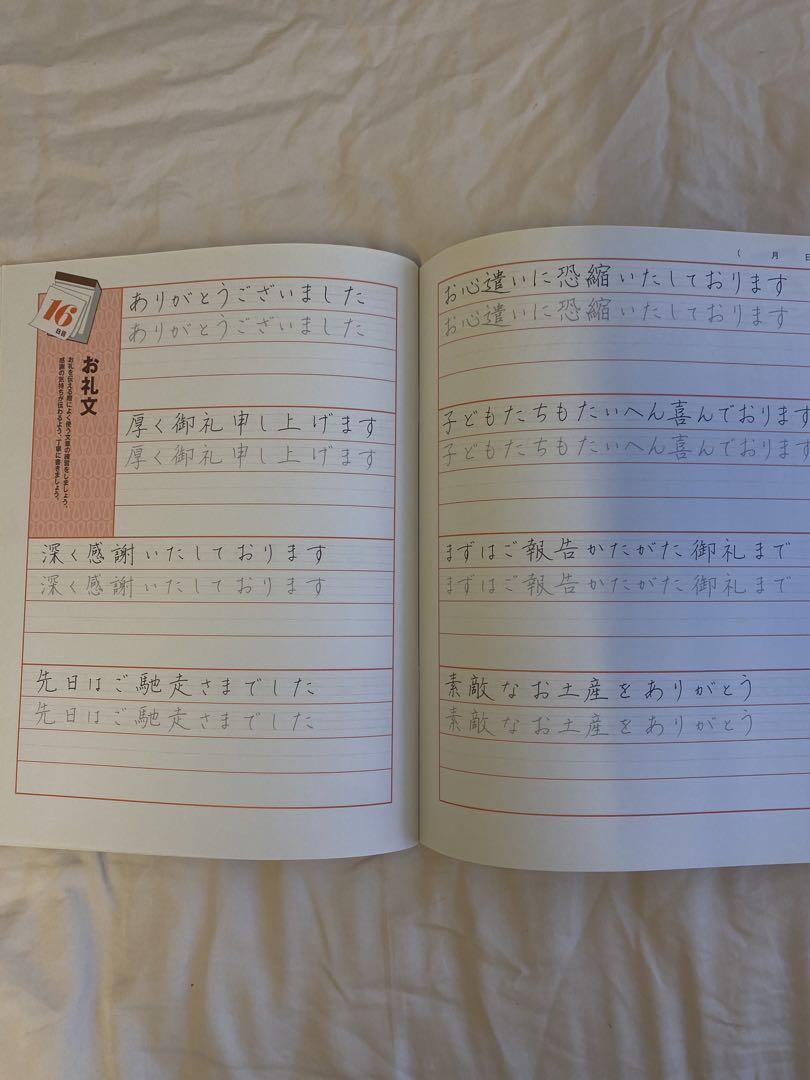 16
日目
お礼文
お礼を伝える際によく使う文章の練習をしましょう。
感謝の気持ちが伝わるよう、丁寧に書きましょう。
ありがとうございました
ありがとうございました
厚く御礼申し上げます
厚く御礼申し上げます
深く感謝いたしております
深く感謝いたしております
先日はご馳走さまでした
先日はご馳走さまでした
( 月 日
お心遣いに恐縮いたしております
お心遣いに恐縮いたしております
子どもたちもたいへん喜んでおります
子どもたちもたいへん喜んでおります
まずはご報告かたがた御礼まで
まずはご報告かたがた御礼まで
素敵なお土産をありがとう
素敵なお土産をありがとう